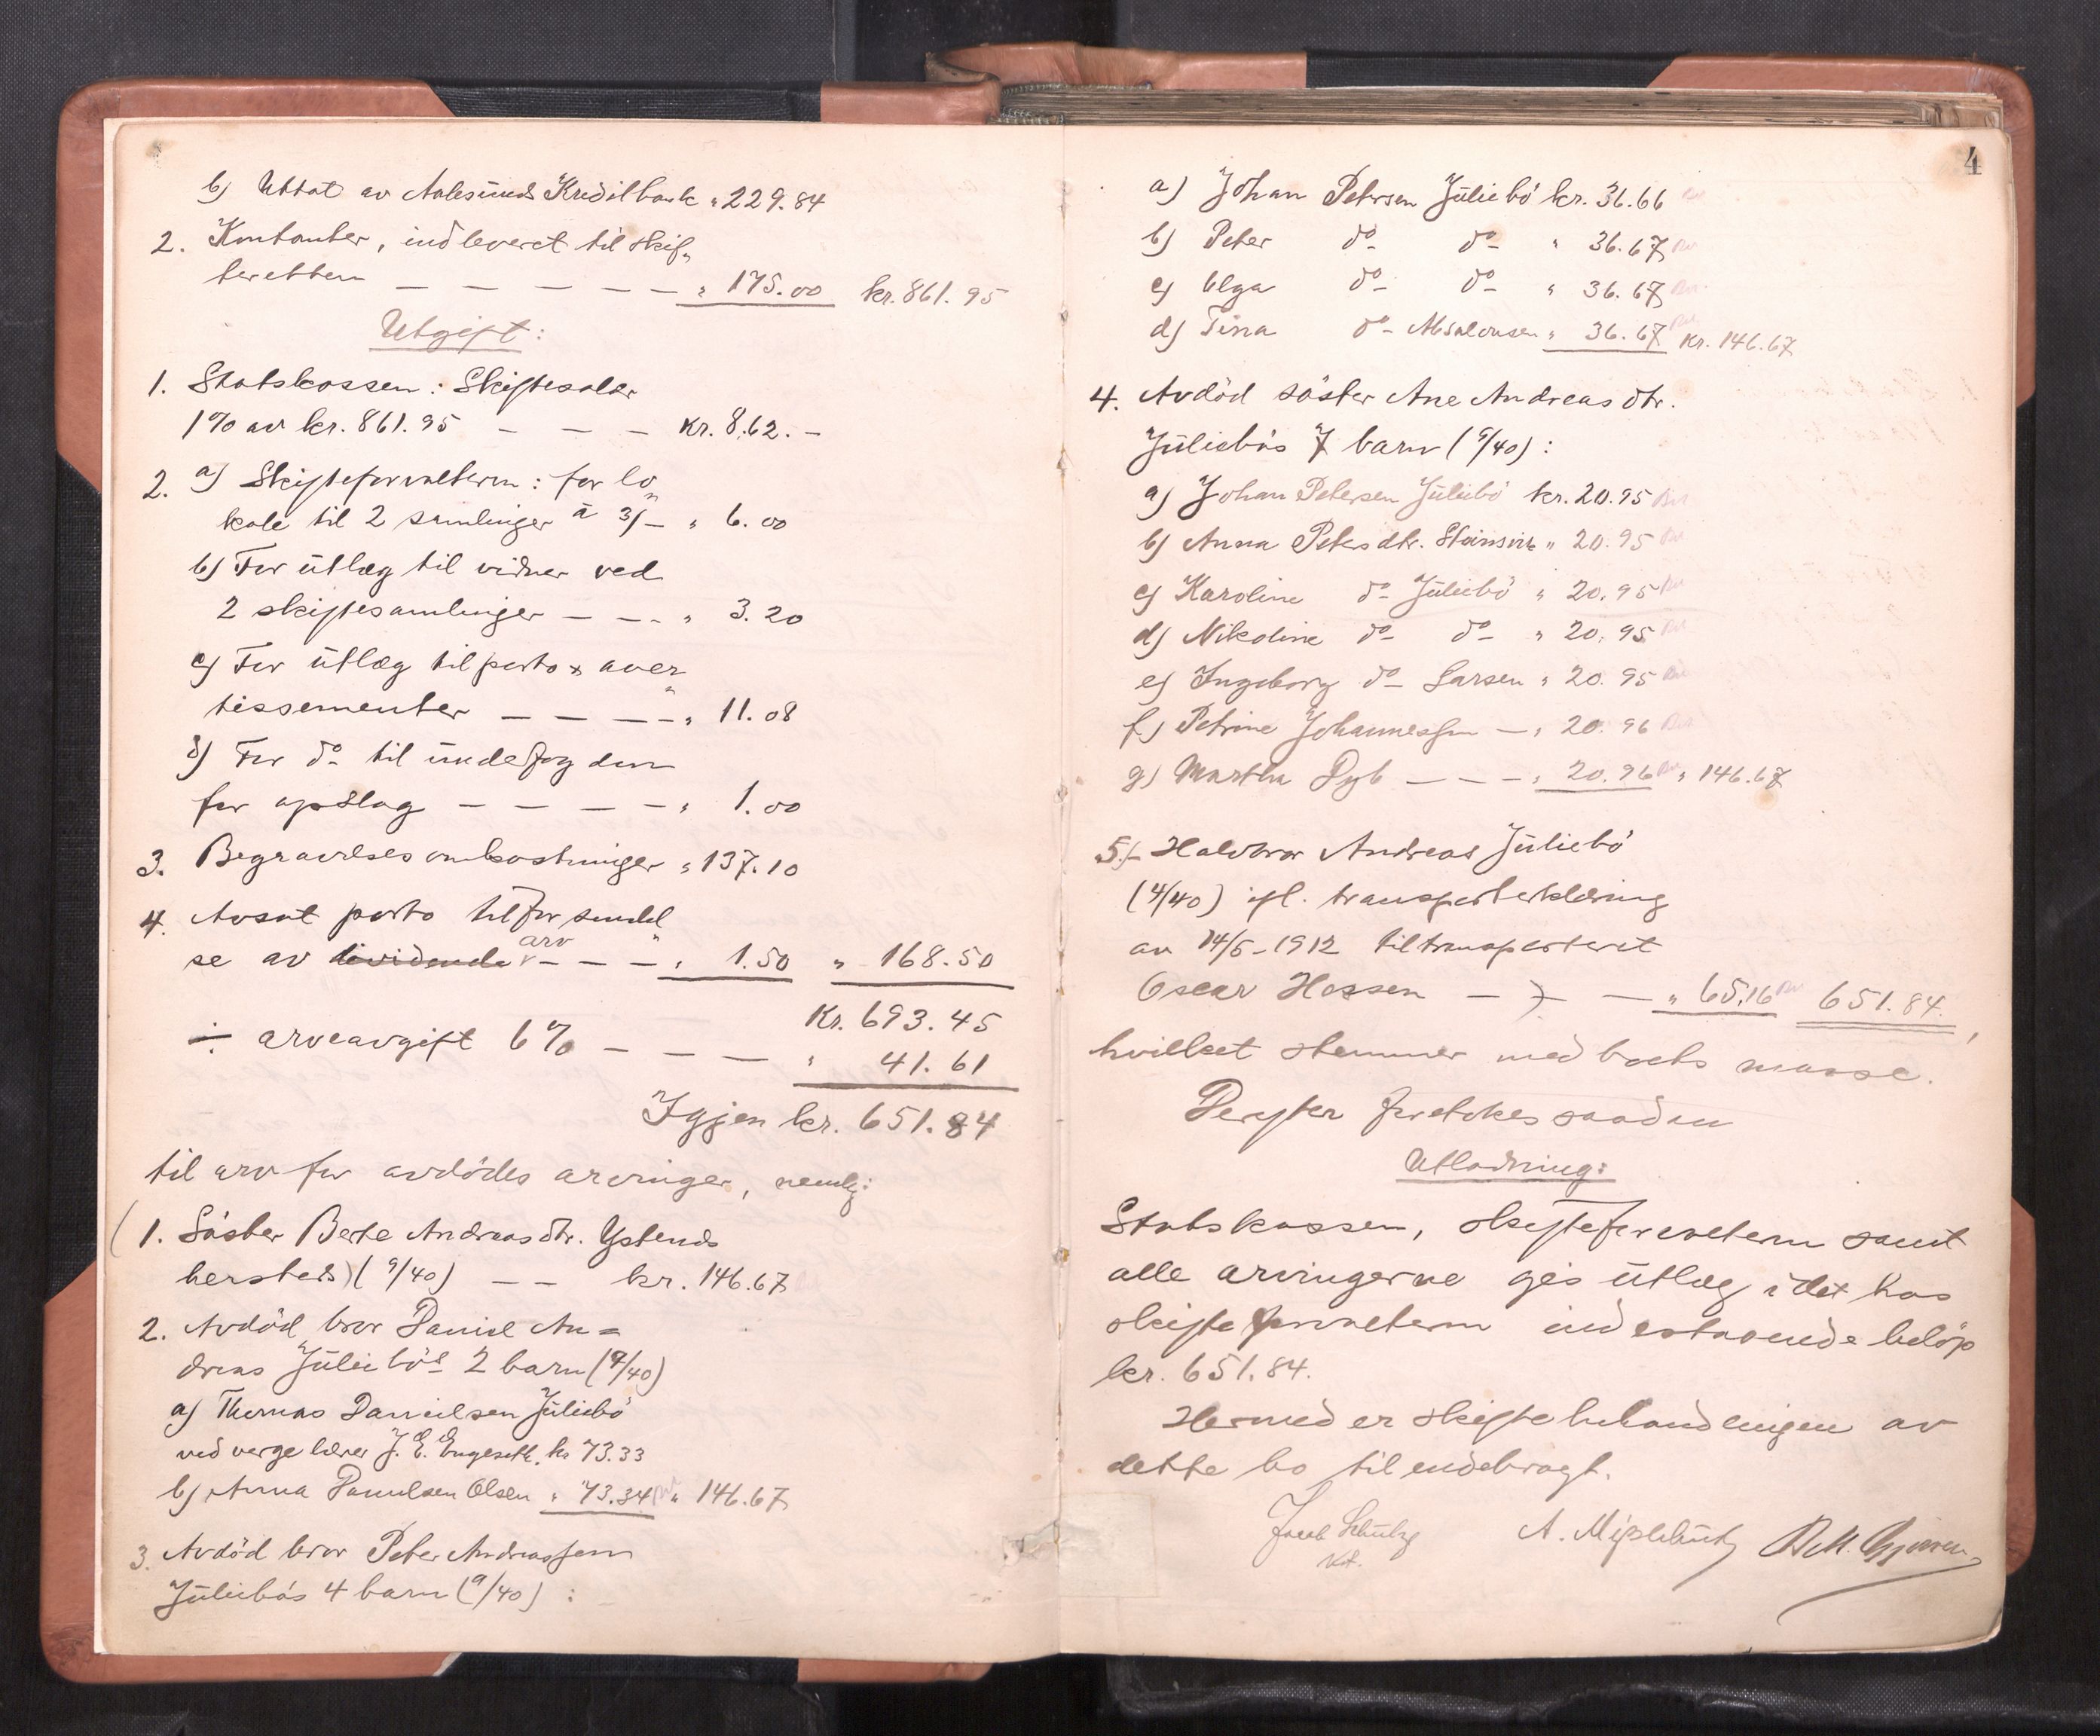 b) Uttat av Aalesunds Kreditbank " 229.84
2. Kontanter, indleveret til skif„
teretten — — — — — — " 175.00 kr. 861.95
Utgift:
1. Statskassen: Skiftesalær
1% av kr. 861.95 — — — kr. 8.62.—
2. a) Skifteforvalteren: for lo„
kale til 2 samlinger à 3/— " 6.00
b) For utlæg til vidner ved
2 skiftesamlinger — — — " 3.20
c) For utlæg til porto & aver„
tissementer — — — — " 11.08
d) For do til
for opslag — — — — — " 1.00
3. Begravelsesomkostninger " 137.10
4. Avsat porto til forsendel„
se av dividende arv — — — " 1.50 " 168.50
Kr. 693.45
÷ arveavgift 6% — — — " 41.61
Igjen kr. 651.84
til arv for avdödes arvinger, nemlig:
(1. Söster Berte Andreasdtr. Ystenes
hersteds) (9/40) — — kr. 146.67
2. Avdöd bror Daniel An=
dreas Juliebö's 2 barn (9/40)
a) Thomas Danielsen Juliebö
ved verge lærer J. E. Engeseth. kr 73.33
b) Anna Danielsen Olsen " 73.34 " 146.67
3. Avdöd bror Peter Andreassen
Juliebös 4 barn (9/40) :
4
a) Johan Petersen Juliebö kr. 36.66
b) Peter do do " 36.67
c) Olga do do " 36.67
d) Tina do Absalonsen " 36.67 kr. 146.67
4. Avdöd söster Ane Andreasdtr.
Juliebös 7 barn (9/40) :
a) Johan Petersen Juliebö kr. 20.95
b) Anna Petersdtr. " 20.95
c) Karoline do Juliebö " 20.95
d) Nikoline do do " 20.95
e) Ingeborg do Larsen " 20.95
f) Petrine Johannessen — " 20.96
g) Martha Dyb — — — " 20.96 " 146.67
5. Halvbror Andreas Juliebö
(4/40) ifl. transporterklæring
av 14/5-1912 tiltransporteret
Oscar Hessen — — — " 65.16 651.84,
hvilket stemmer med boets masse.
Derefter foretokes saadan
Utlodning:
Statskassen, skifteforvalteren samt
alle arvingerne gis utlæg i det hos
skifteforvalteren indestaaende belöp
kr. 651.84.
Hermed er skiftebehandlingen av
dette bo tilendebragt.
Jacob Schultz